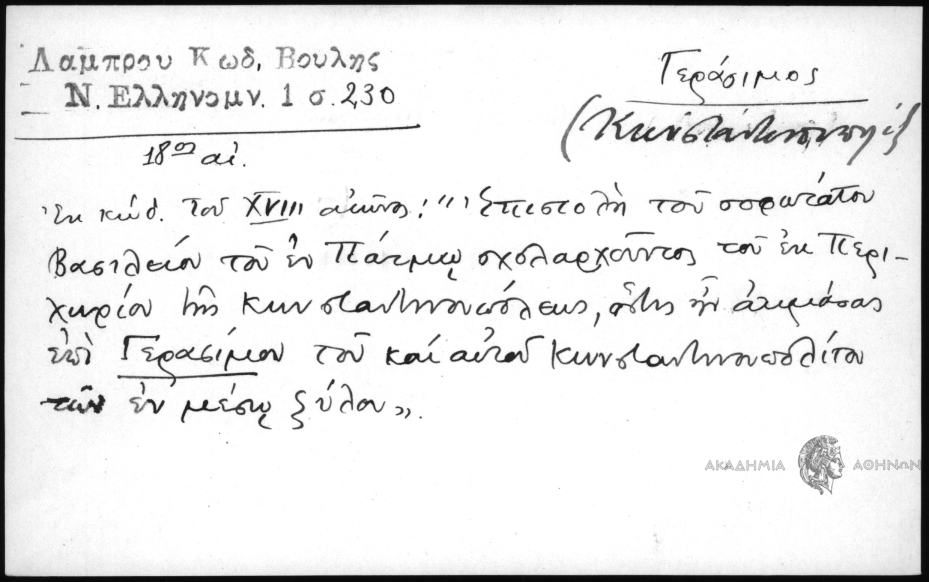 Λαμπρου Κωδ. Βουλης
Ν. Ελληνομν. 1 σ. 230
Γεράσιμος
18ος αἰ.
Ἐκ κώδ. τοῦ XVIII αἰῶνος: "Ἐπιστολὴ τοῦ σοφωτάτου
Βασιλείου τοῦ ἐν Πάτμῳ σχολαρχοῦντος τοῦ ἐκ Περι-
χωρίου τῆς Κωνσταντινουπόλεως, ὅστις ἦν ἀκμάσας
ἐπὶ Γερασίμου τοῦ καὶ αὐτοῦ Κωνσταντινουπολίτου
τῶν ἐν μέσῳ ξύλου».
ΑΚΑΔΗΜΙΑ ΑΘΗΝΩΝ